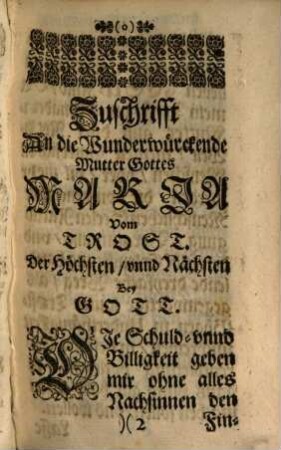 (o)
Zuschrifft
An die Wunderwürckende
Mutter Gottes
MARIA
Vom
TROST.
Der Höchsten / unnd Nächsten
Bey
GOTT.
DJe Schuld- vnnd
Billigkeit geben
mir ohne alles
Nachsinnen den
)( 2 Fin-